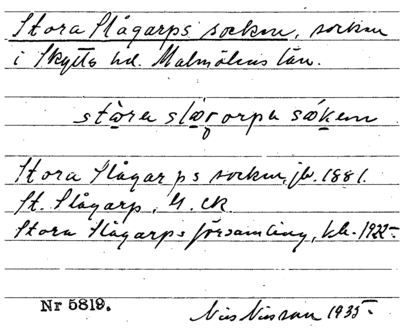 Stora Slågarps socken, socken
i Skytts hd. Malmöhus län.
Stora Slågarps socken, jb. 1881.
St. Slågarp, G. ck.
Stora Slågarps församling, kb. 1922-
Nr 5819.
Nils Nilsson 1935